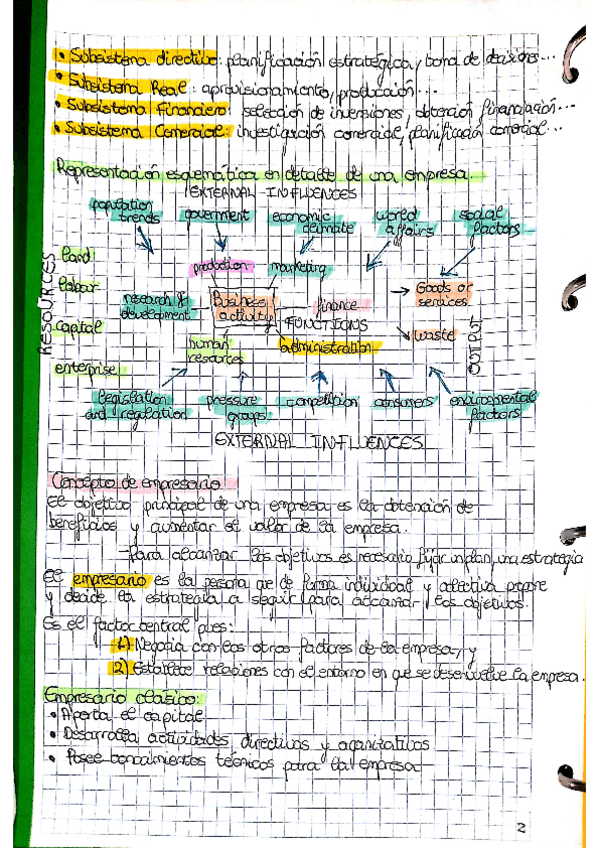 • Subsistema directivo: planificación estratégica, toma de decisiones...
• Subsistema Real: aprovisionamiento, producción...
• Subsistema Financiero: selección de inversiones, obtención financiación...
• Subsistema Comercial: investigación comercial, planificación comercial...
Representación esquemática en detalle de una empresa.
EXTERNAL INFLUENCES
population trends
goverment
economic climate
world affairs
social factors
RESOURCES
land
labour
capital
enterprise
production
marketing
research & development
Business activity
finance
FUNCTIONS
human resources
administration
Goods or services
waste
OUTPUT
legislation and regulation
pressure groups
competition
consumers
environmental factors
EXTERNAL INFLUENCES
Concepto de empresario
El objetivo principal de una empresa es la obtención de
beneficios y aumentar el valor de la empresa.
Para alcanzar los objetivos es necesario fijar un plan, una estrategia
El empresario es la persona que de forma individual y colectiva propone
y decide la estrategia a seguir para alcanzar los objetivos.
Es el factor central pues:
1) Negocia con los otros factores de la empresa, y
2) Establece relaciones con el entorno en que se desenvuelve la empresa.
Empresario clásico:
• Aporta el capital
• Desarrolla actividades directivas y organizativas
• Posee conocimientos técnicos para la empresa
2